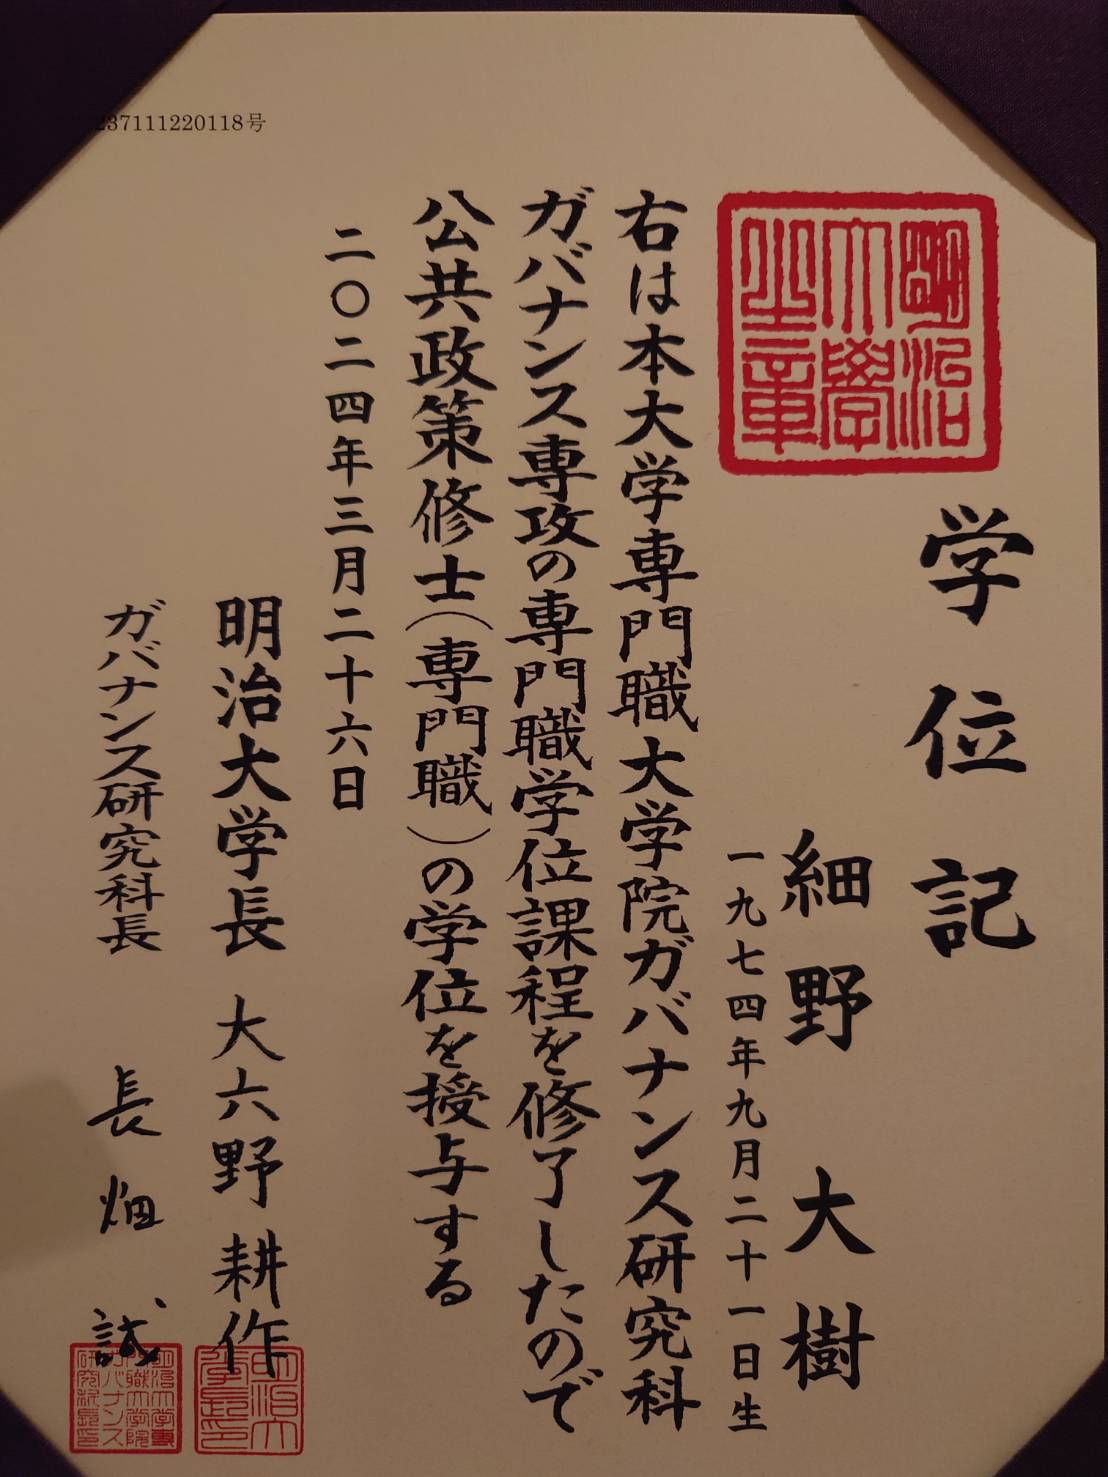 学位記
明治大学之章
細野大樹
一九七四年九月二十一日生
右は本大学専門職大学院ガバナンス研究科
ガバナンス専攻の専門職学位課程を修了したので
公共政策修士(専門職)の学位を授与する
二〇二四年三月二十六日
明治大学長 大六野耕作
ガバナンス研究科長 長畑誠
237111220118号